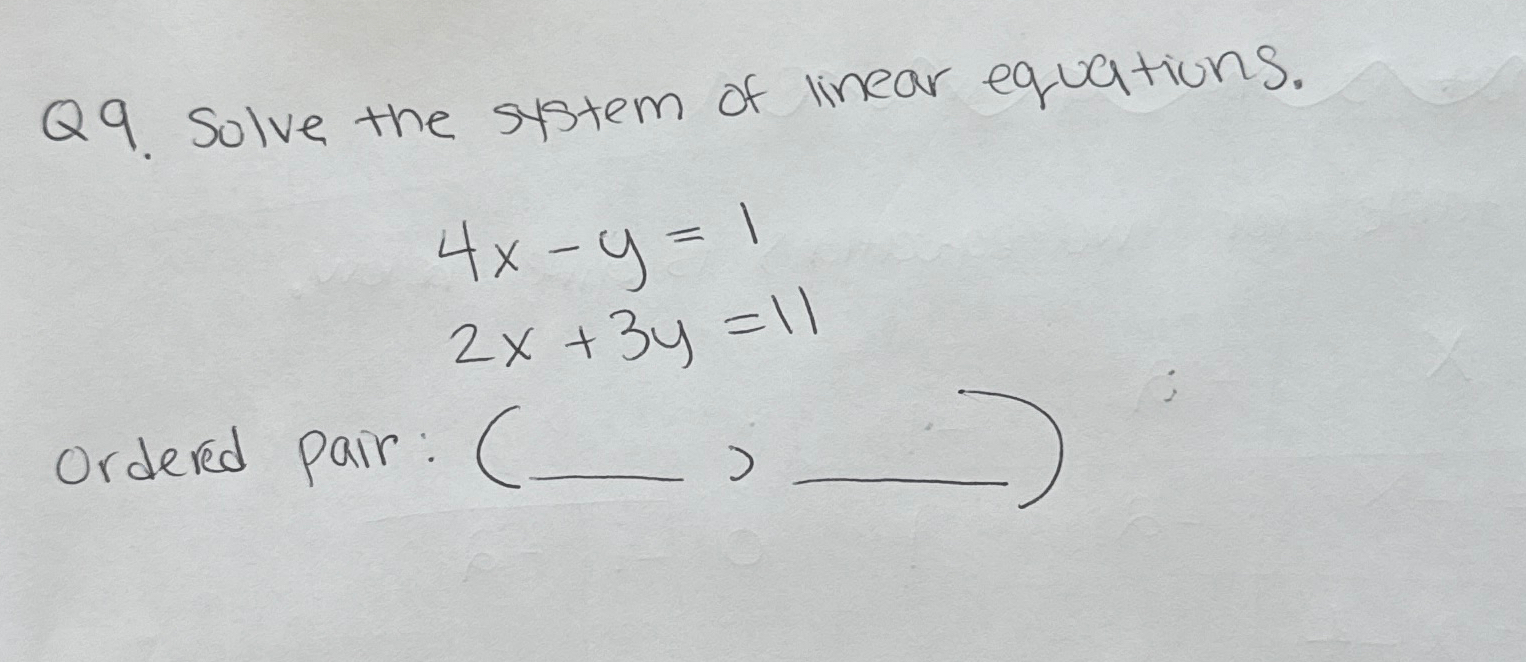 Q9. Solve the system of linear equations.
4x - y = 1
2x + 3y = 11
Ordered pair: (___, ___)